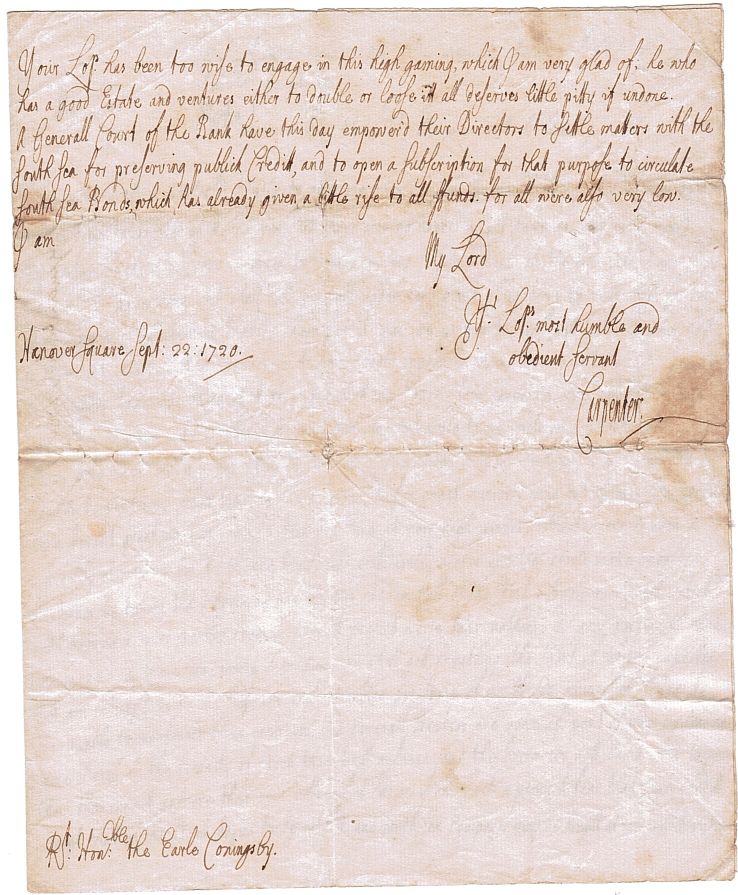 Your Lopˢ has been too wise to engage in this high gaming, which I am very glad of: he who
has a good Estate and ventures either to double or loose it all deserves little pitty if undone.
A Generall Court of the Bank have this day empower'd their Directors to settle matters with the
South Sea for preserving publick Credit, and to open a subscription for that purpose to circulate
South Sea Bonds, which has already given a little rise to all ffunds. for all were also very low.
I am
My Lord
Yʳ. Lopˢ. most humble and
obedient servant
Hanover Square Sept: 22: 1720.
Carpenter.
Rᵗ: Honᵇˡᵉ: the Earle Coningsby.